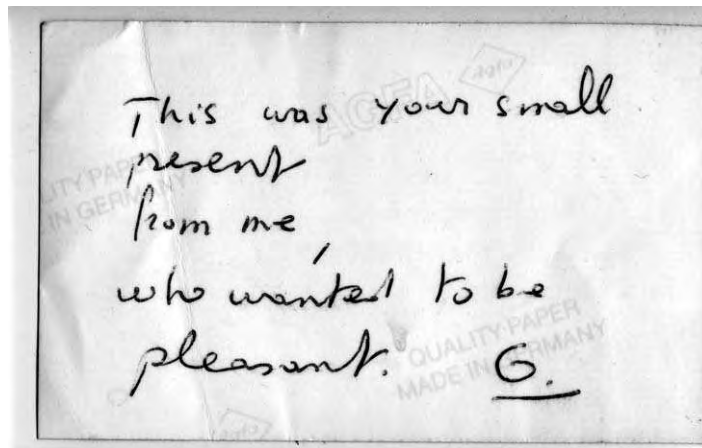 This was your small
present
from me,
who wanted to be
pleasant. G.
AGFA
Agfa
QUALITY PAPER
MADE IN GERMANY
LITY PAPER
IN GERMANY